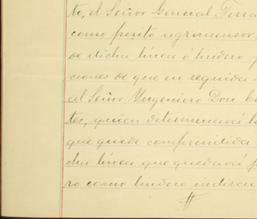 to, el Señor General Terra
como perito agrimensor,
se dicha línea ó lindero p
ciones se que en seguida
al Señor Yngeniero Don
tes, quien determinará l
que quede comprendida
cha línea que quedará p
ro como lindero